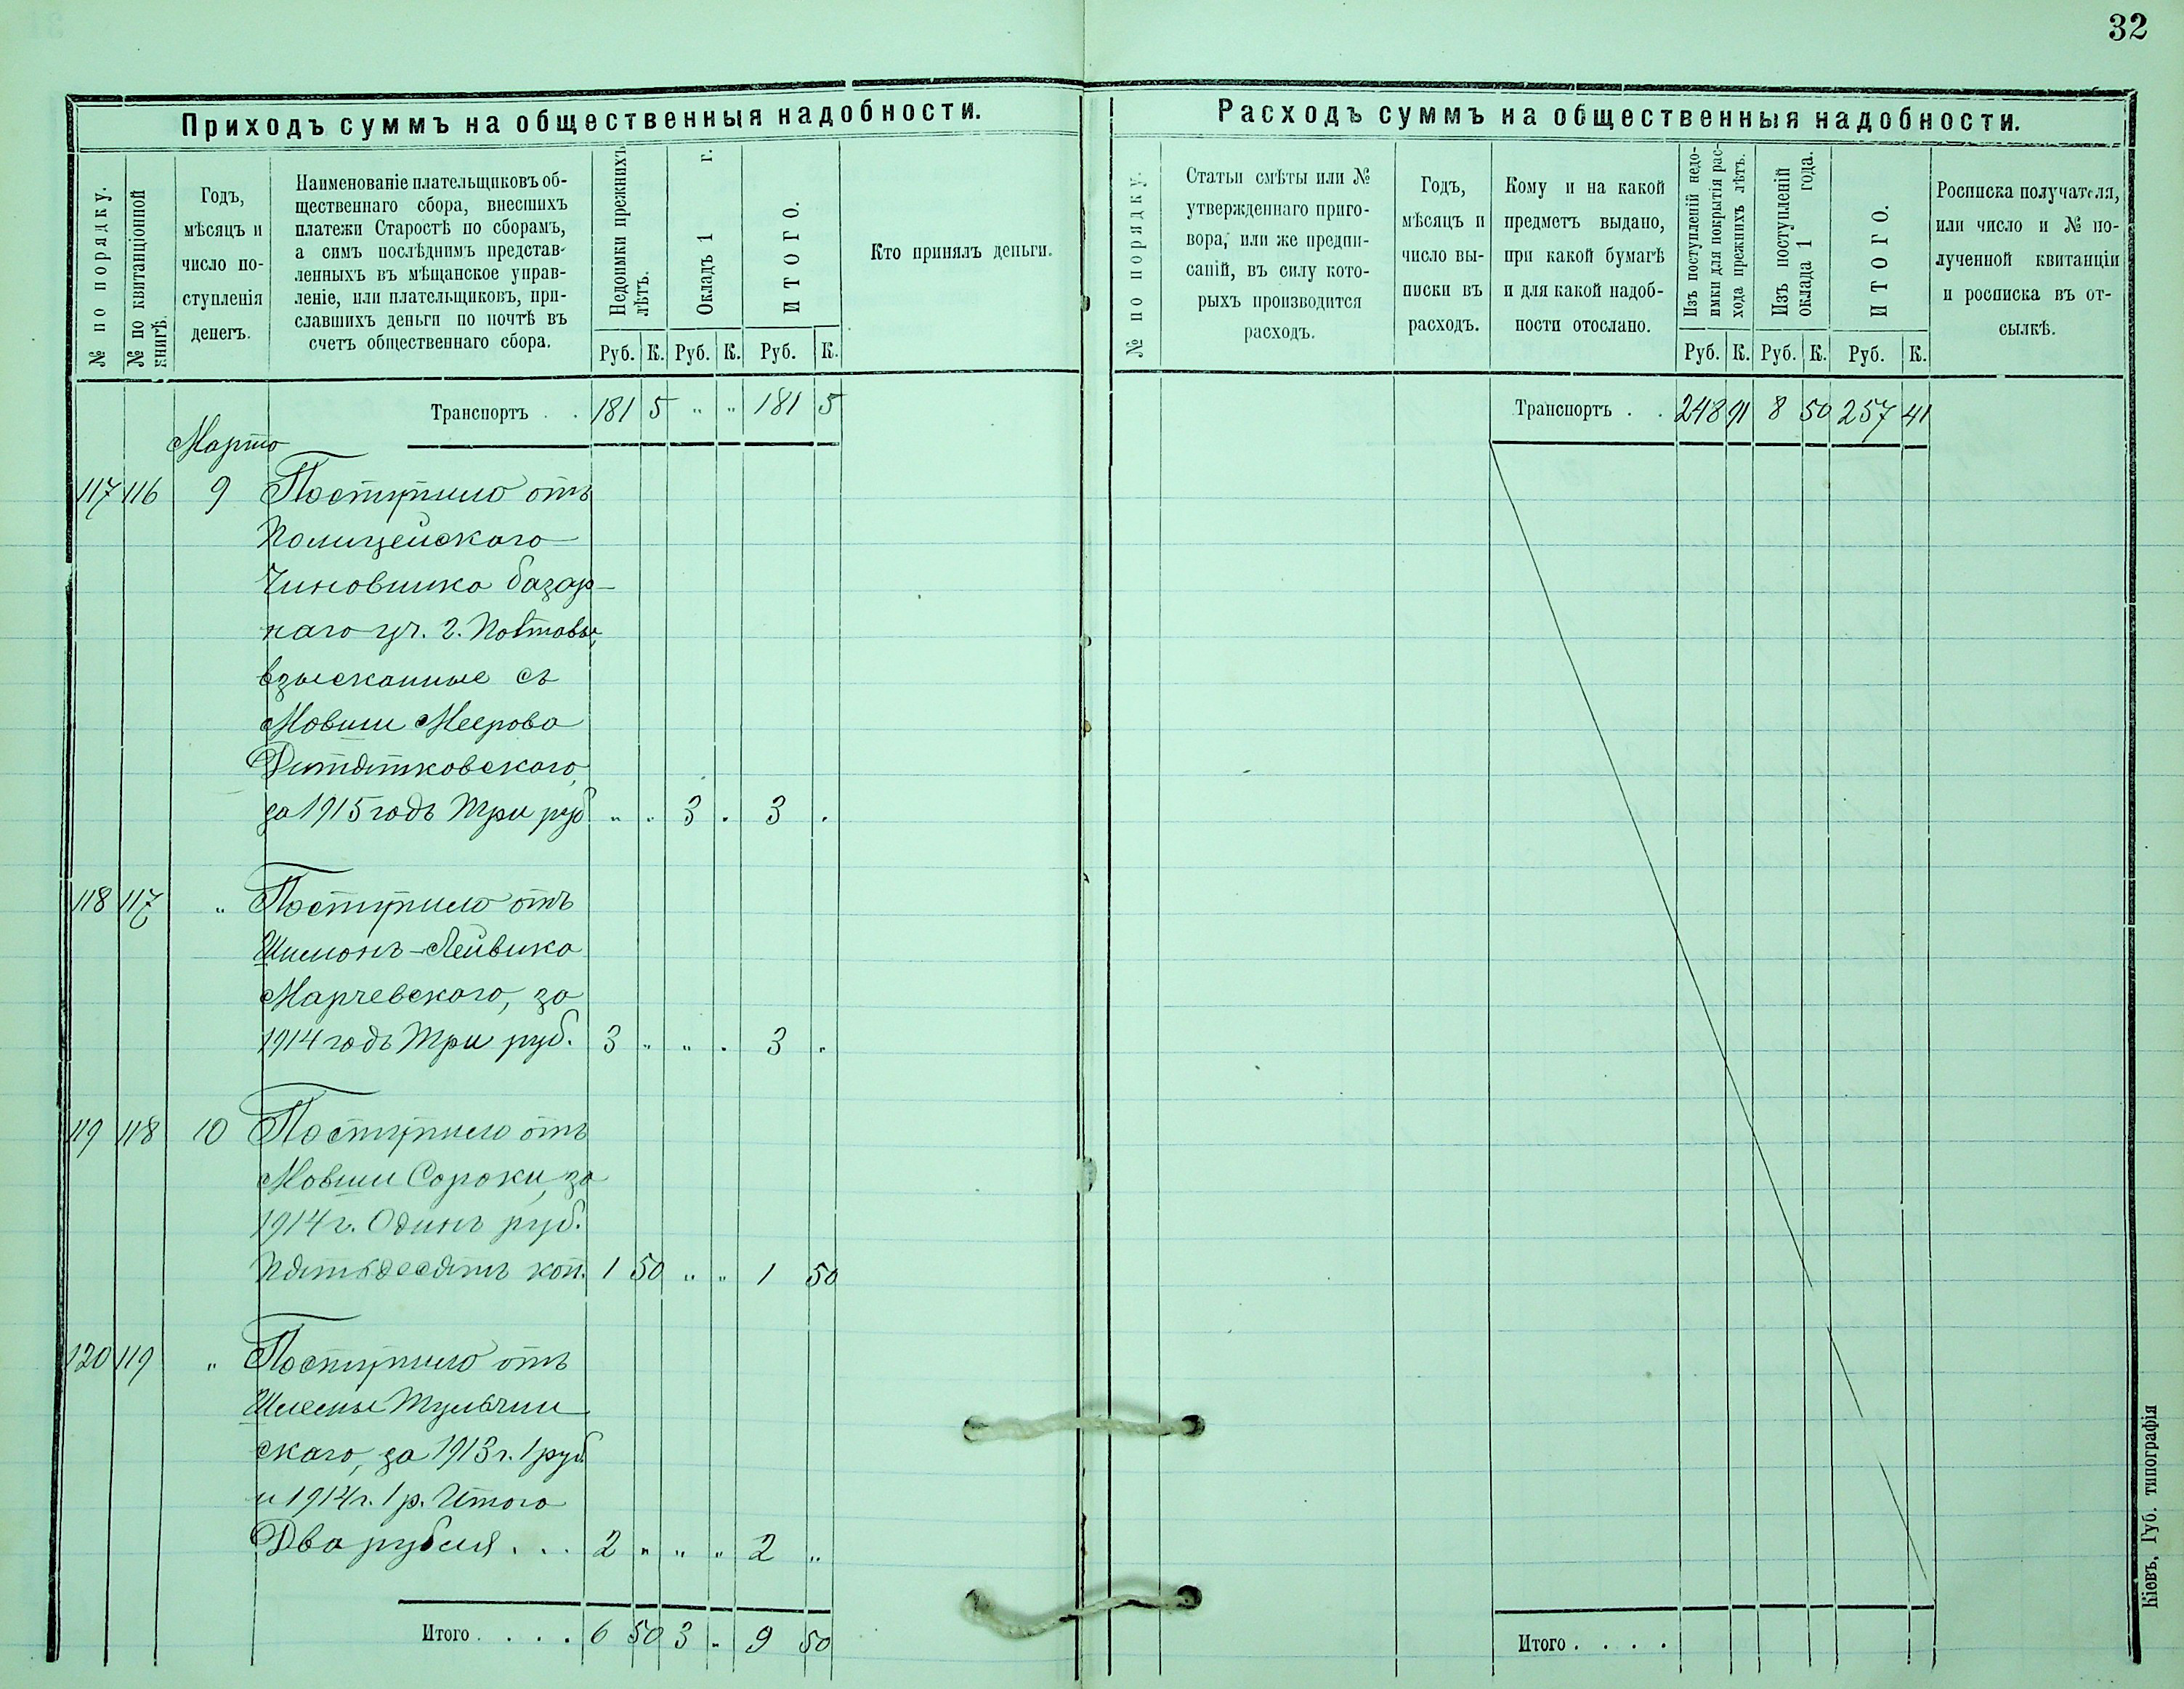 32
Приходъ суммъ на общественныя надобности.
№ по порядку.
№ по квитанціонной
книгѣ.
Годъ,
мѣсяцъ и
число по-
ступленія
денегъ.
Наименованіе плательщиковъ об-
щественнаго сбора, внесшихъ
платежи Старостѣ по сборамъ,
а симъ послѣднимъ представ-
ленныхъ въ мѣщанское управ-
леніе, или плательщиковъ, при-
славшихъ деньги по почтѣ въ
счетъ общественнаго сбора.
Недоимки прежнихъ
лѣтъ.
Окладъ 1 г.
ИТОГО.
Кто принялъ деньги.
Руб. К. Руб. К. Руб. К.
Транспортъ . . 181 5 " " 181 5
Марта
117 116 9 Поступило отъ
Полицейского
Чиновника базар-
наго уч. г. Полтавы,
взысканные съ
Мовши Меерова
Дитятковского,
за 1915 годъ Три руб " " 3 . 3 .
118 117 " Поступило отъ
Шимонъ-Лейвика
Марчевского, за
1914 годъ Три руб. 3 " " . 3 .
119 118 10 Поступило отъ
Мовши Сороки, за
1914 г. Одинъ руб.
Пятьдесятъ коп. 1 50 " " 1 50
120 119 " Поступило отъ
Шлемы Тульчин
скаго, за 1913 г. 1 руб
и 1914 г. 1 р. Итого
Два рубля . . . 2 " " " 2 "
Итого . . . . 6 50 3 " 9 50
Расходъ суммъ на общественныя надобности.
№ по порядку.
Статьи смѣты или №
утвержденнаго приго-
вора, или же предпи-
саній, въ силу кото-
рыхъ производится
расходъ.
Годъ,
мѣсяцъ и
число вы-
писки въ
расходъ.
Кому и на какой
предметъ выдано,
при какой бумагѣ
и для какой надоб-
ности отослано.
Изъ поступленій недо-
имки для покрытія рас-
хода прежнихъ лѣтъ.
Изъ поступленій
оклада 1 года.
ИТОГО.
Росписка получателя,
или число и № по-
лученной квитанціи
и росписка въ от-
сылкѣ.
Руб. К. Руб. К. Руб. К.
Транспортъ . . 248 91 8 50 257 41
Итого . . . .
Кіевъ, Губ. типографія